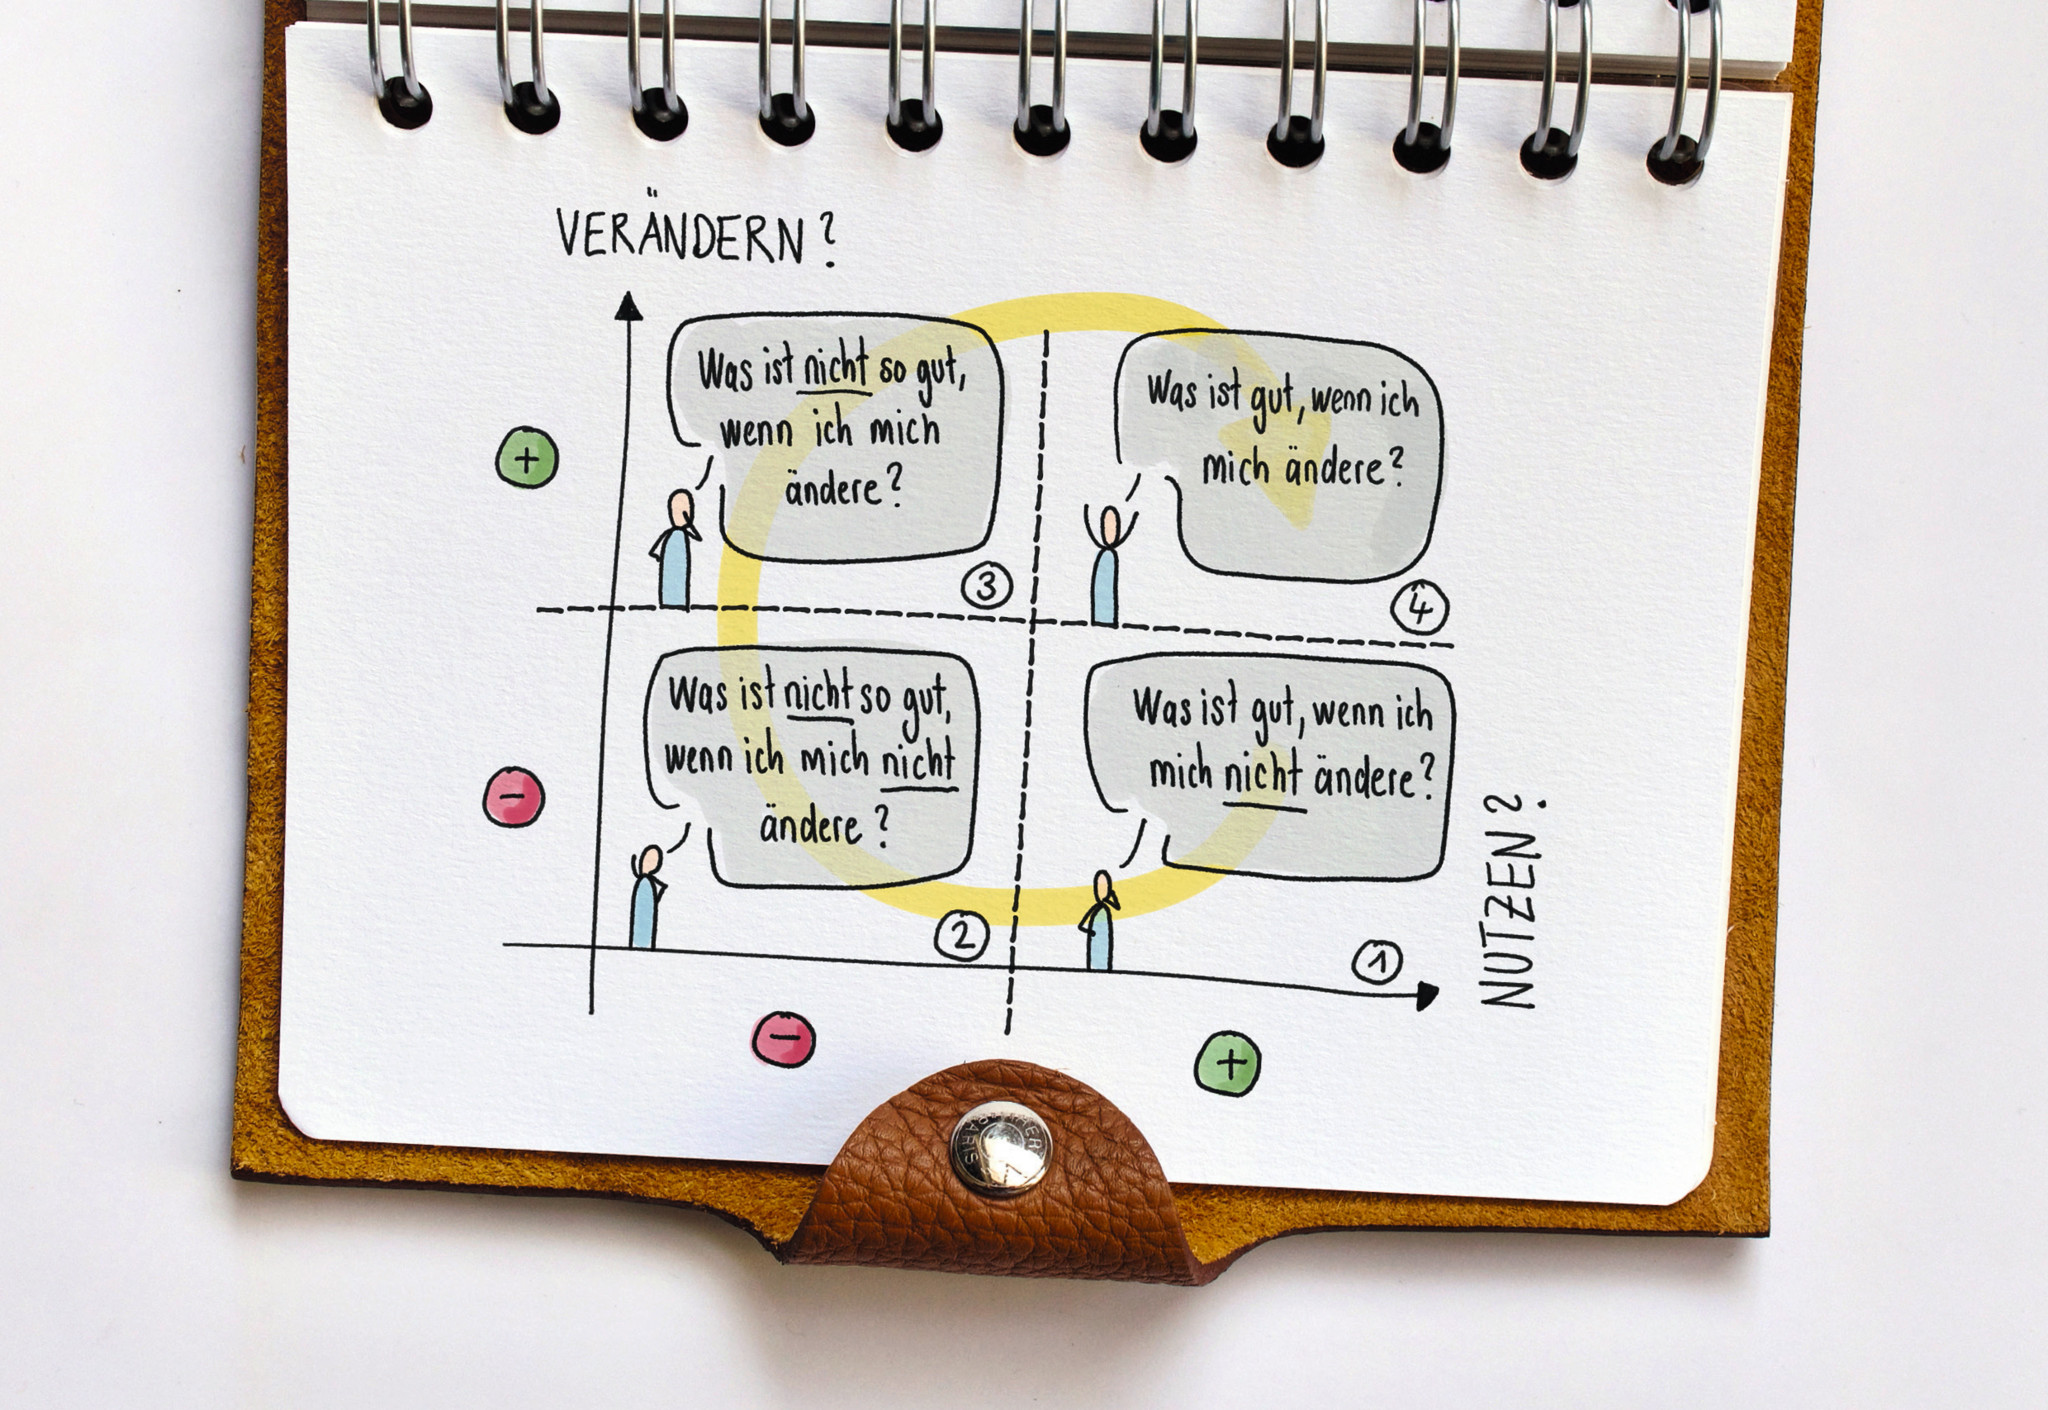 VERÄNDERN?
Was ist nicht so gut,
wenn ich mich
ändere?
3
Was ist gut, wenn ich
mich ändere?
4
+
Was ist nicht so gut,
wenn ich mich nicht
ändere?
2
Was ist gut, wenn ich
mich nicht ändere?
1
-
NUTZEN?
-
+
PARIS